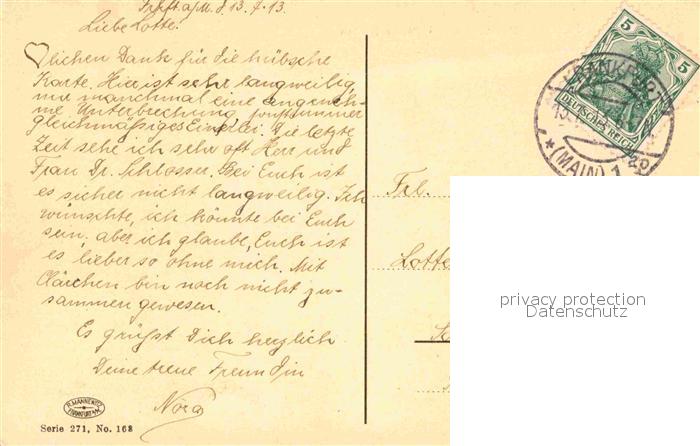 Frkft. a/M. d 13.7.13.
Liebe Lotte!
♡lichen Dank für die hübsche
Karte. Hier ist sehr langweilig,
nur manchmal eine angeneh-
me Unterbrechung, sonst immer
gleichmäßiges Einerlei. Die letzte
Zeit sehe ich sehr oft Herr und
Frau Dr. Schlosser. Bei Euch ist
es sicher nicht langweilig. Ich
wünschte, ich könnte bei Euch
sein, aber ich glaube, Euch ist
es lieber so ohne mich. Mit
Clärchen bin noch nicht zu-
sammen gewesen.
Es grüßt Dich herzlich
Deine treue Freundin
Nora
R. MANNEWITZ
FRANKFURT A/M.
Serie 271, No. 168
5 5
DEUTSCHES REICH
FRANKFURT
* (MAIN) 1
Frl.
Lotte
privacy protection
Datenschutz